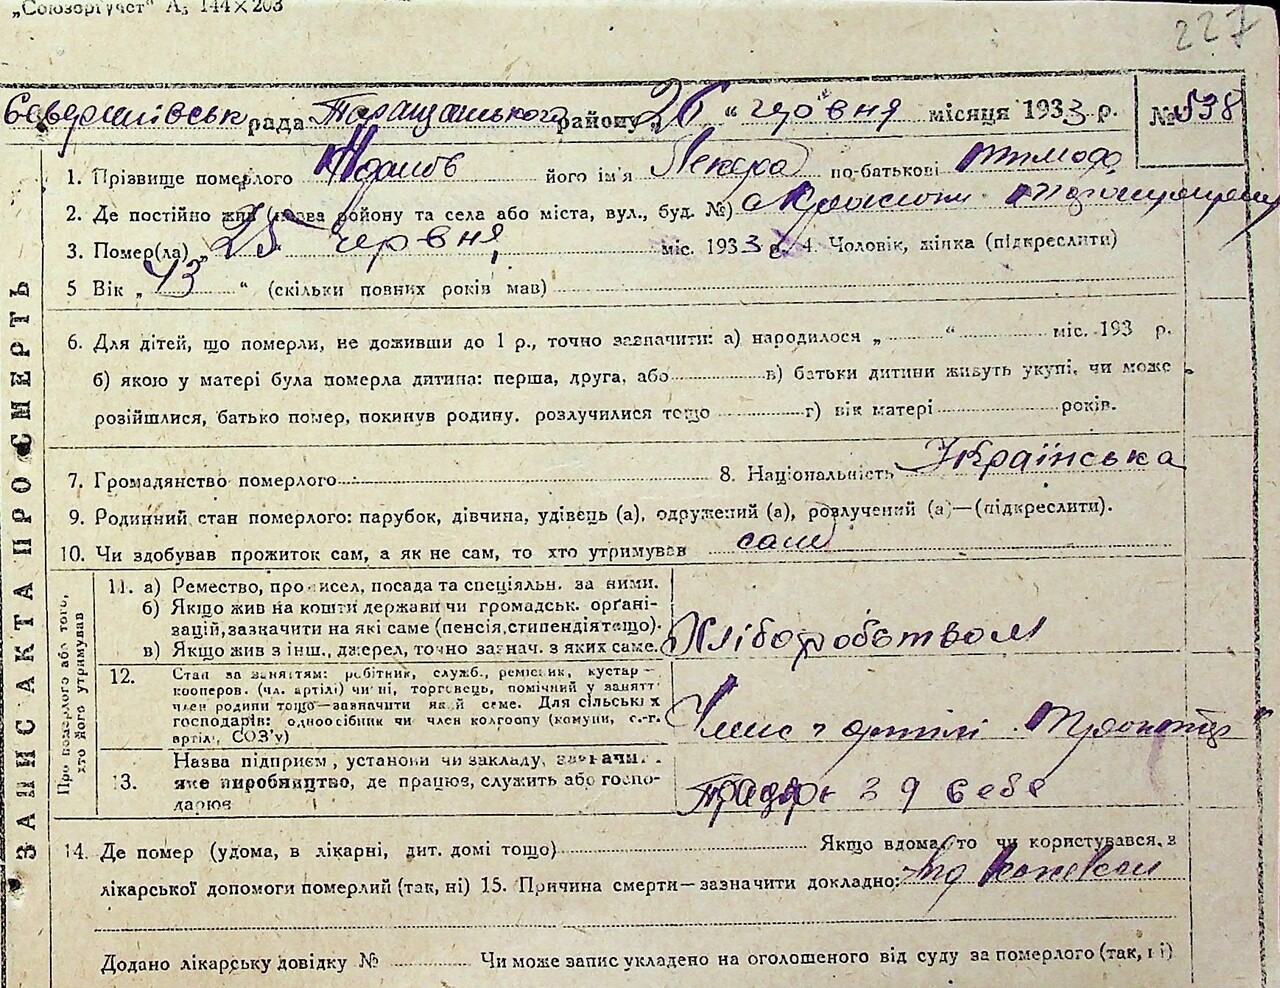 „Союзоргучет" А₅ 144×203
227
рада Таращанського району „26" червня місяця 1933 р. № 538
1. Прізвище померлого його ім'я по-батькові Тимоф.
2. Де постійно жив (назва району та села або міста, вул., буд. №)
3. Помер(ла) „25" червня міс. 1933 р. 4. Чоловік, жінка (підкреслити)
5 Вік „43" (скільки повних років мав)
6. Для дітей, що померли, не доживши до 1 р., точно зазначити: а) народилося „ " міс. 193 р.
б) якою у матері була померла дитина: перша, друга, або в) батьки дитини живуть укупі, чи може
розійшлися, батько помер, покинув родину, розлучилися тощо г) вік матері років.
7. Громадянство померлого 8. Національність Українська
9. Родинний стан померлого: парубок, дівчина, удівець (а), одружений (а), розлучений (а)—(підкреслити).
10. Чи здобував прожиток сам, а як не сам, то хто утримував сам
ЗАПИС АКТА ПРО СМЕРТЬ
Про померлого або того,
хто його утримував
11. а) Ремество, промисел, посада та спеціяльн. за ними.
б) Якщо жив на кошти держави чи громадськ. орґані-
зацій, зазначити на які саме (пенсія, стипендія тощо).
в) Якщо жив з інш., джерел, точно зазнач. з яких саме.
Хліборобством
12. Стан за заняттям: робітник, служб., ремісник, кустар—
кооперов. (чл. артілі) чи ні, торговець, помічний у занятті
член родини тощо—зазначити який саме. Для сільських
господарів: одноосібник чи член колгоспу (комуни, с.-г.
артілі, СОЗ'у)
13. Назва підприєм., установи чи закладу, зазначити
яке виробництво, де працює, служить або госпо-
дарює
14. Де помер (удома, в лікарні, дит. домі тощо) Якщо вдома, то чи користувався з
лікарської допомоги померлий (так, ні) 15. Причина смерти—зазначити докладно:
Додано лікарську довідку № Чи може запис укладено на оголошеного від суду за померлого (так, ні)